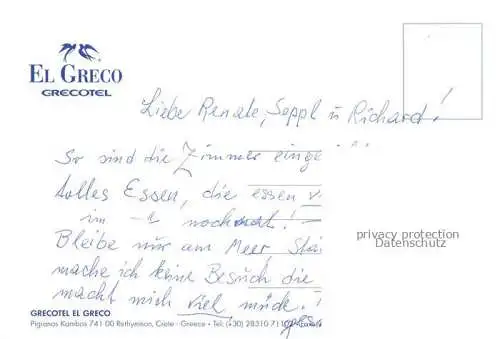 EL GRECO
GRECOTEL
Liebe Renate, Seppl u Richard!
So sind die Zimmer einge
tolles Essen, die essen
im
Bleibe nur am Meer
mache ich keine Besuch die
macht mich viel müde.
privacy protection
Datenschutz
GRECOTEL EL GRECO
Pigianos Kambos 741 00 Rethymnon, Crete - Greece • Tel: (+30) 28310 71102